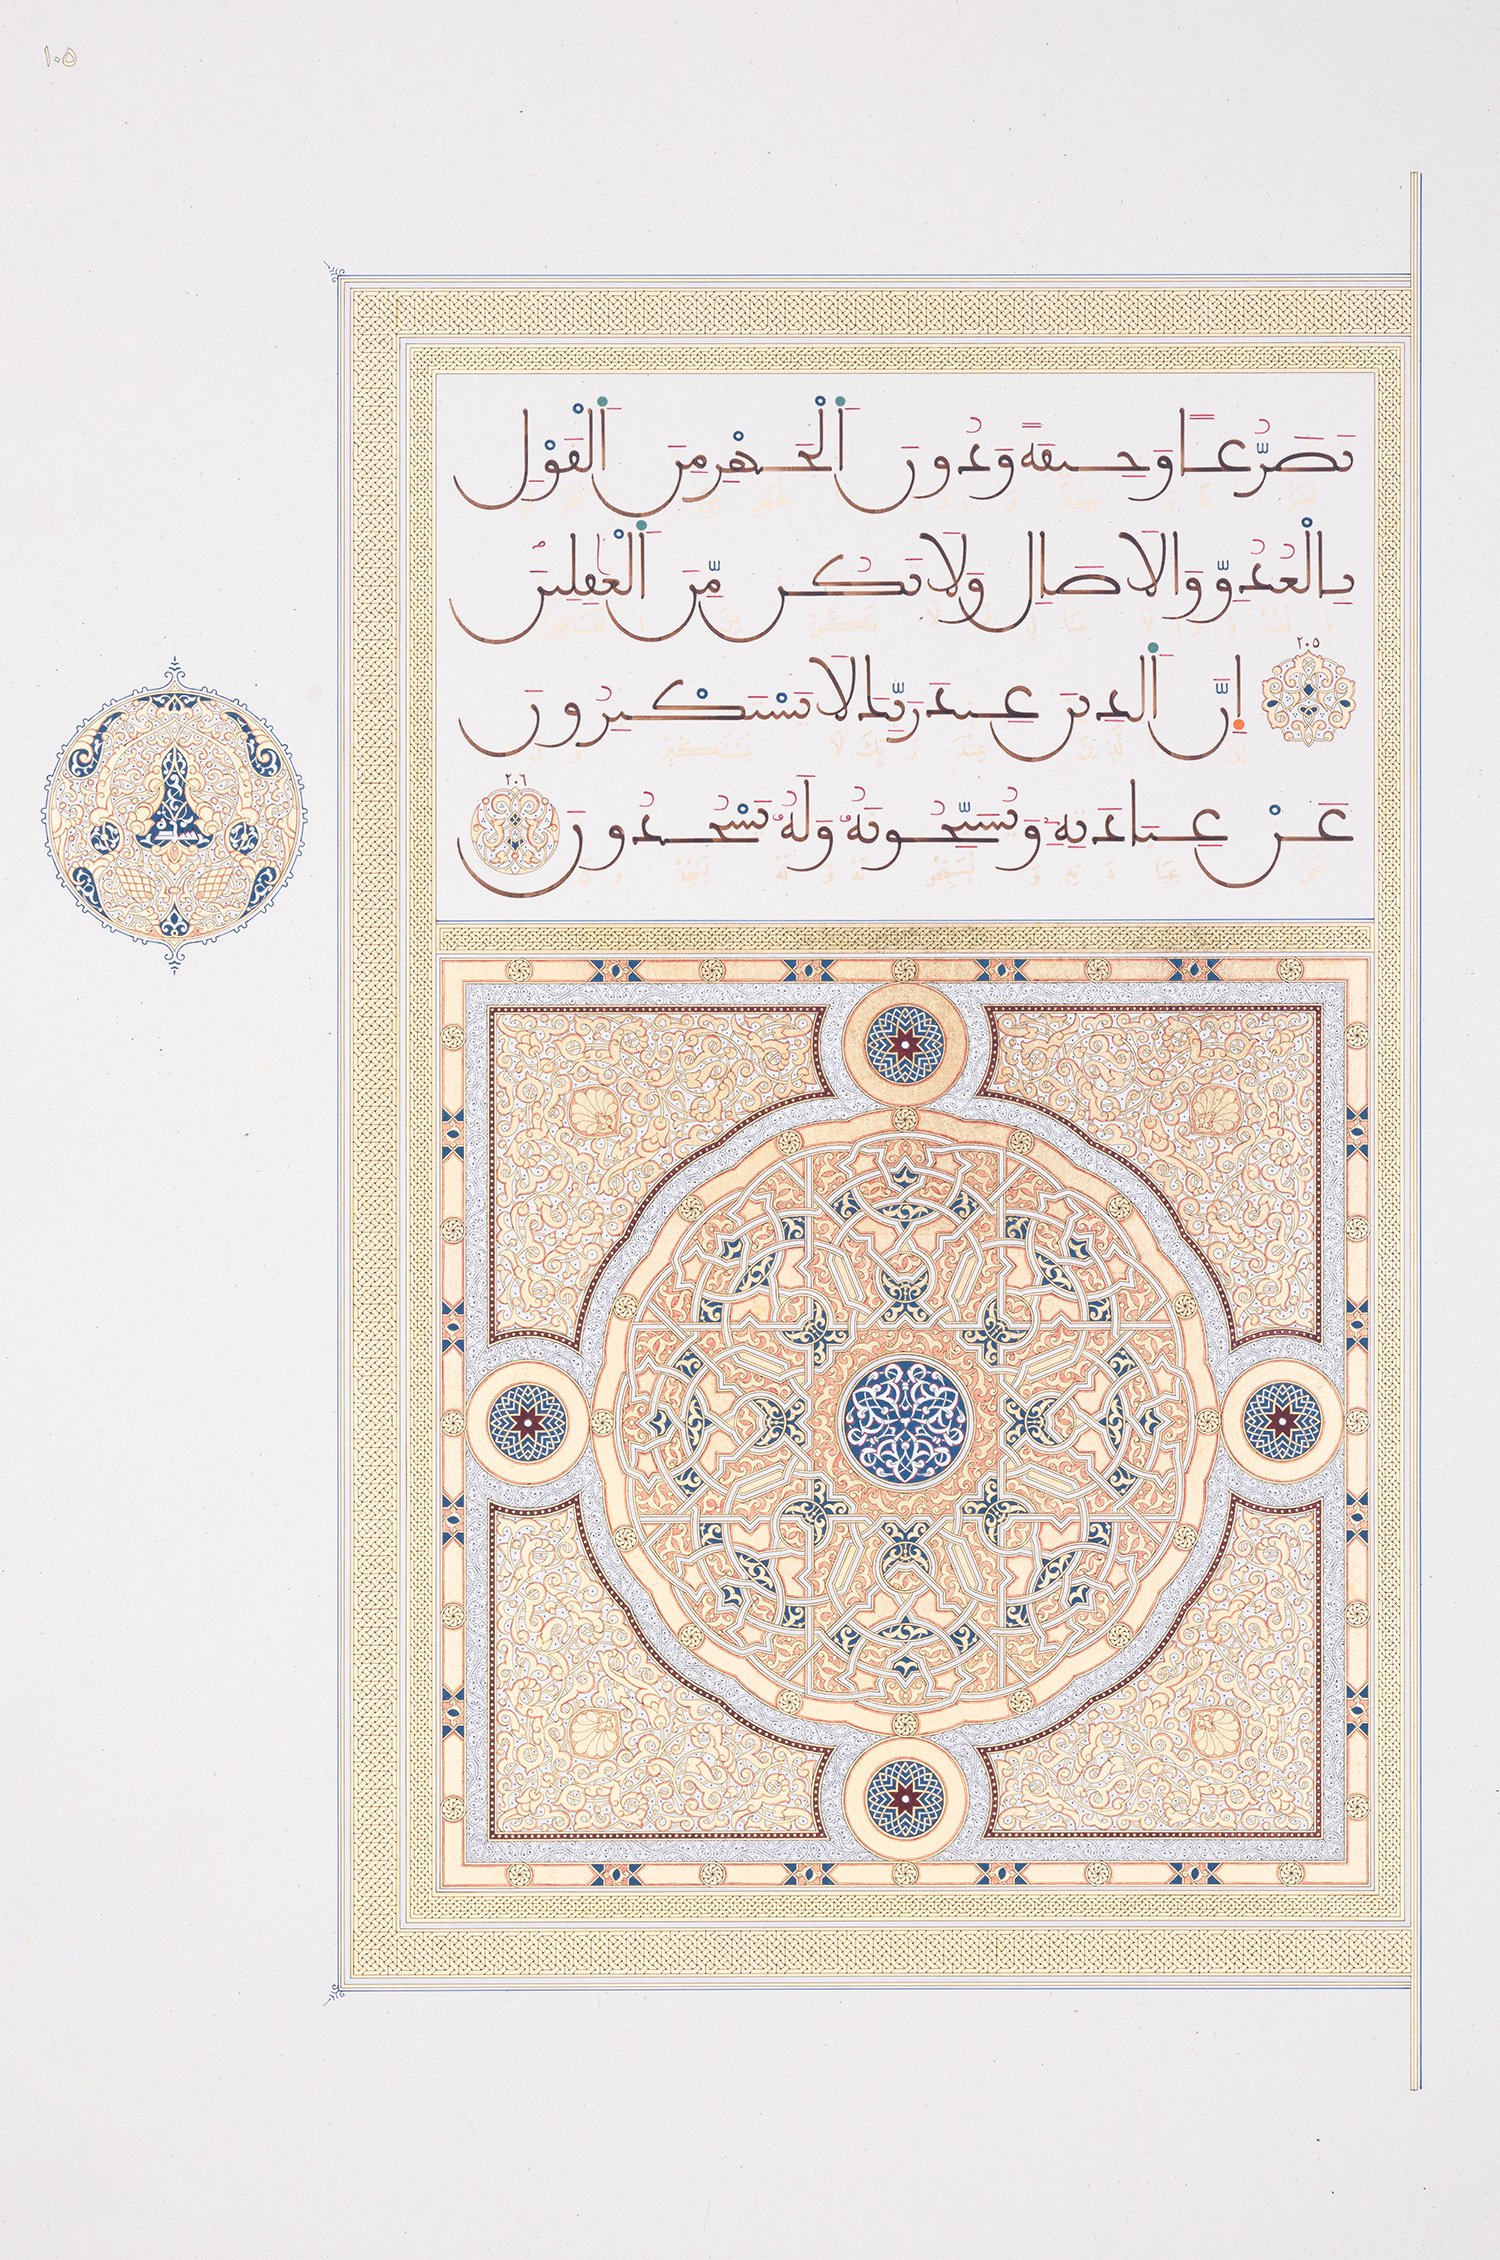 ١٠٥
تَضَرُّعًا وَخِيفَةً وَدُونَ ٱلْجَهْرِ مِنَ ٱلْقَوْلِ
بِالْغُدُوِّ وَالْاصَالِ وَلَا تَكُن مِّنَ ٱلْغَٰفِلِينَ
٢٠٥ إِنَّ ٱلذِينَ عِندَ رَبِّكَ لَا يَسْتَكْبِرُونَ
عَنْ عِبَادَتِهِ وَيُسَبِّحُونَهُ وَلَهُ يَسْجُدُونَ ٢٠٦